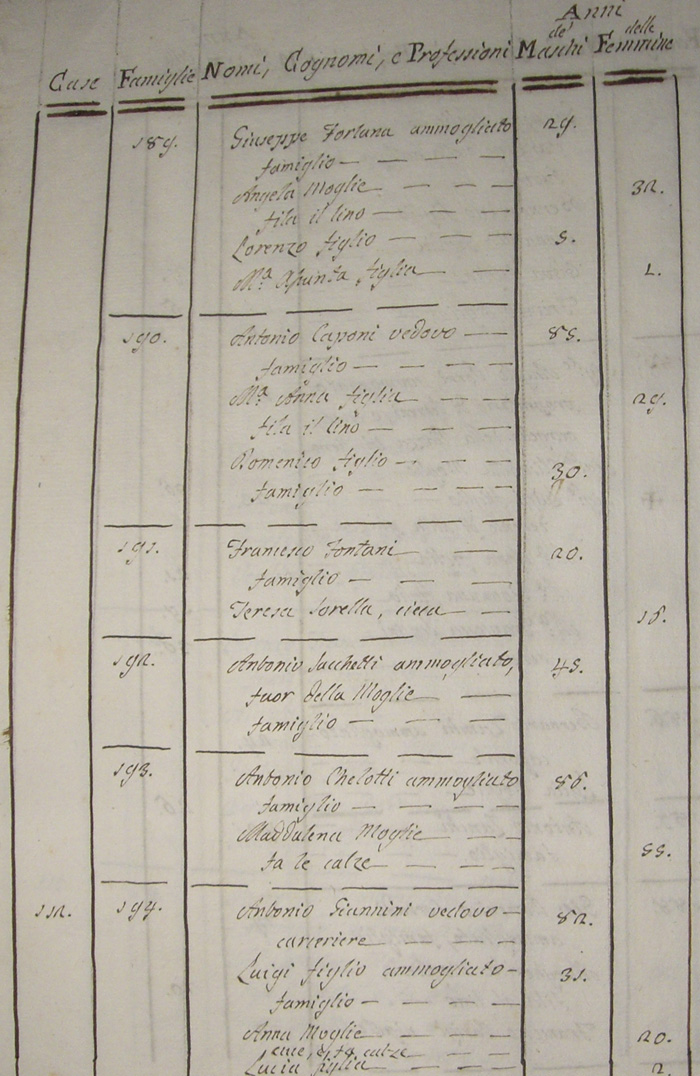 Anni
de' delle
Case Famiglie Nomi, Cognomi, e Professioni Maschi Femmine
189. Giuseppe Fortuna ammogliato 29.
famiglio
Angela Moglie 32.
fila il lino
Lorenzo figlio 5.
M.a Assunta figlia 1.
190. Antonio Caponi vedovo 85.
famiglio
M.a Anna figlia 29.
fila il lino
Domenico figlio 30.
famiglio
191. Francesco Fontani 20.
famiglio
Teresa Sorella, cieca 18.
192. Antonio Sacchetti ammogliato, 45.
fuor della Moglie
famiglio
193. Antonio Chelotti ammogliato 56.
famiglio
Maddalena Moglie 55.
fa le calze
112. 194. Antonio Giannini vedovo 82.
carceriere
Luigi figlio ammogliato 31.
famiglio
Anna Moglie 20.
cuce, e fa calze
Lucia figlia 2.